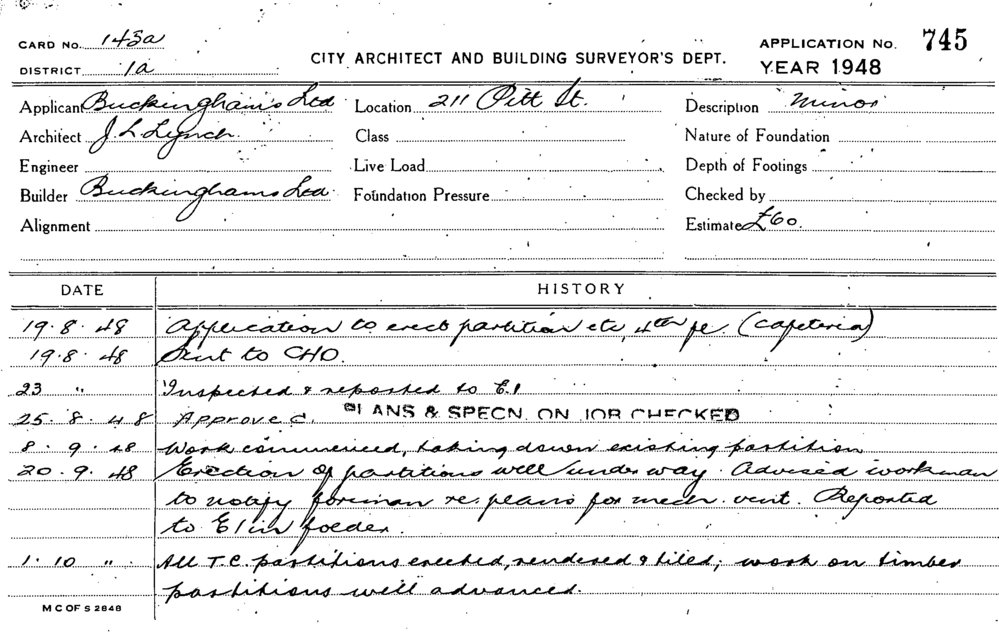 CARD No. 143a
CITY ARCHITECT AND BUILDING SURVEYOR'S DEPT.
APPLICATION No. 745
DISTRICT 1a
YEAR 1948
Applicant Buckinghams Ltd Location 211 Pitt St. Description Minor
Architect J. L. Lynch. Class Nature of Foundation
Engineer Live Load Depth of Footings
Builder Buckinghams Ltd. Foundation Pressure Checked by
Alignment Estimate £60.
DATE HISTORY
19.8.48 Application to erect partition etc, 4th (Cafeteria)
19.8.48 Sent to CHO.
23 " Inspected & reported to E.1
25.8.48 Approved. PLANS & SPECN. ON JOB CHECKED
8.9.48 Work commenced, taking down existing partition
20.9.48 Erection of partitions well under way. Advised workman
to notify foreman re. plans for mech. vent. Reported
to E1 in folder.
1.10 " All T.C. partitions erected, rendered & tiled; work on timber
partitions well advanced.
M C OF S 2848